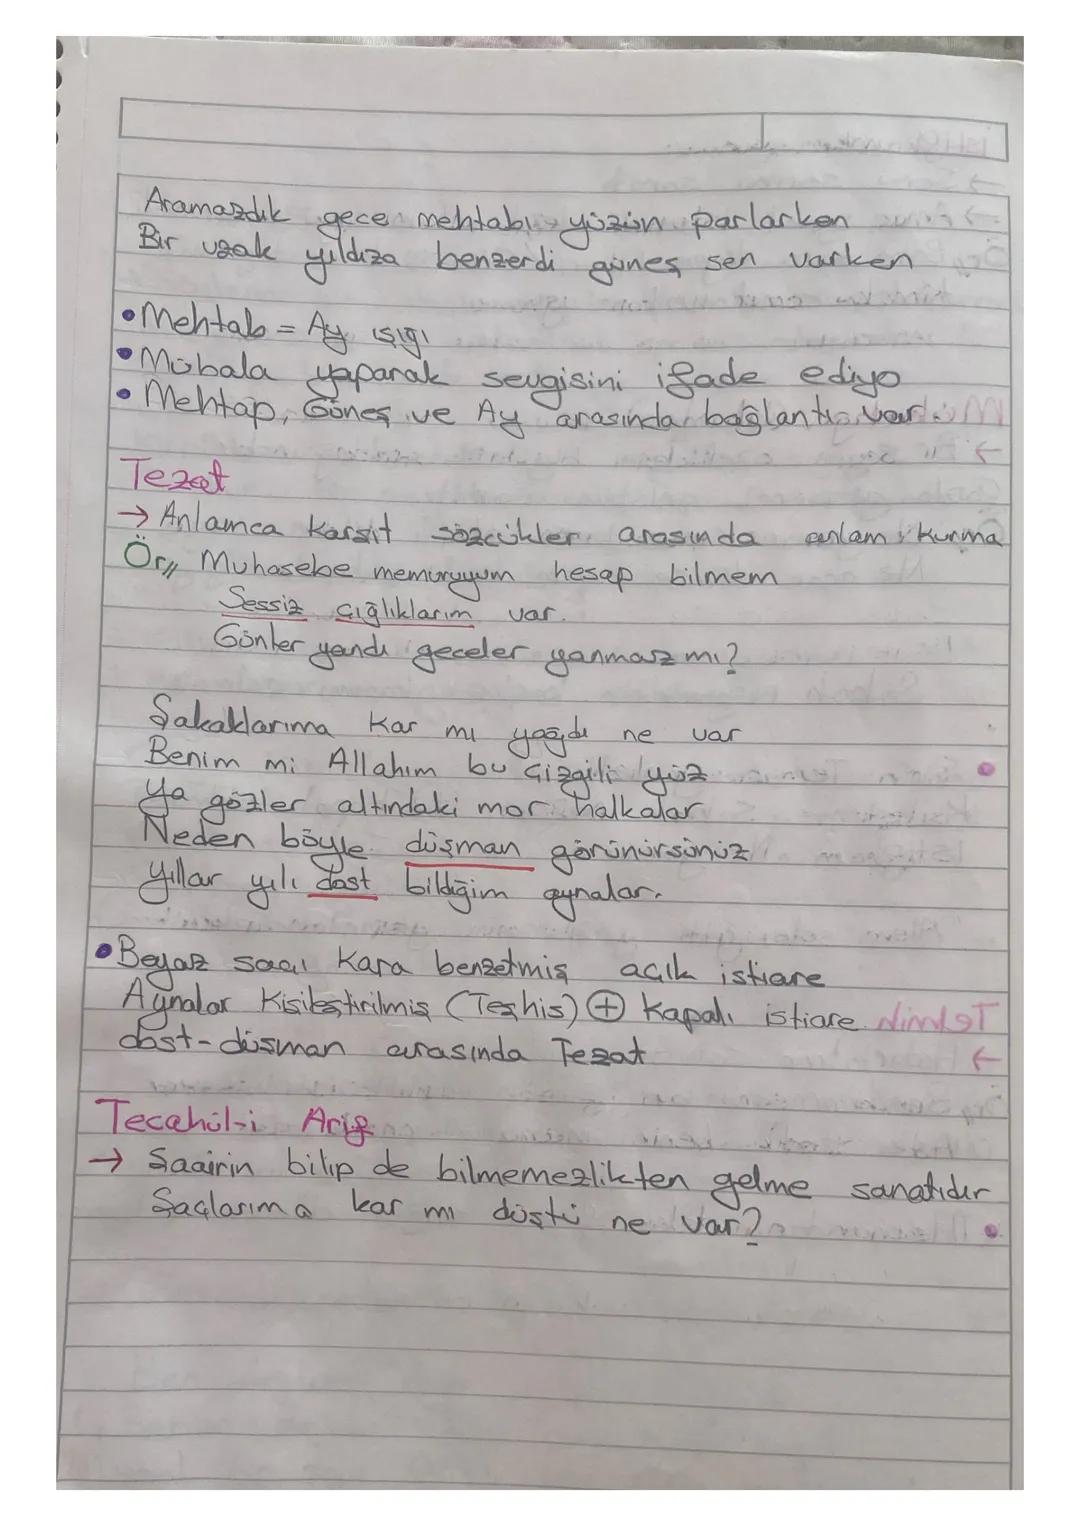 Aramazdık gece mehtabı yüzün parlarken
Bir uzak yıldıza benzerdi güneş sen varken
•Mehtab = Ay ışığı
•Mübala yaparak sevgisini ifade ediyo
•Mehtap, Güneş ve Ay arasında bağlantı var.
Tezat
→ Anlamca karşıt sözcükler arasında anlam kurma
Ör// Muhasebe memuruyum hesap bilmem
Sessiz çığlıklarım var.
Günler yandı geceler yanmaz mı?
Şakaklarıma kar mı yağdı ne var
Benim mi Allahım bu çizgili yüz
Ya gözler altındaki mor halkalar
Neden böyle düşman görünürsünüz
Yıllar yılı dost bildiğim aynalar.
•Beyaz saçı kara benzetmiş açık istiare
Aynalar Kişileştirilmiş (Teşhis) ⊕ kapalı istiare
dost-düşman arasında Tezat
Tecahül-i Arif
→ Şaairin bilip de bilmemezlikten gelme sanatıdır
Saçlarıma kar mı düştü ne var?